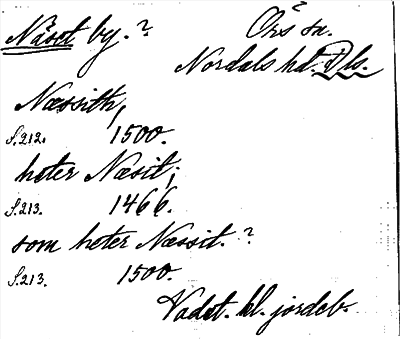 Näset by.? Örs sn.
Nordals hd. Dls.
Næssith,
S.212. 1500.
heter Næsit;
S.213. 1466.
som heter Næssit.?
S.213. 1500.
Vadst. kl. jordeb.